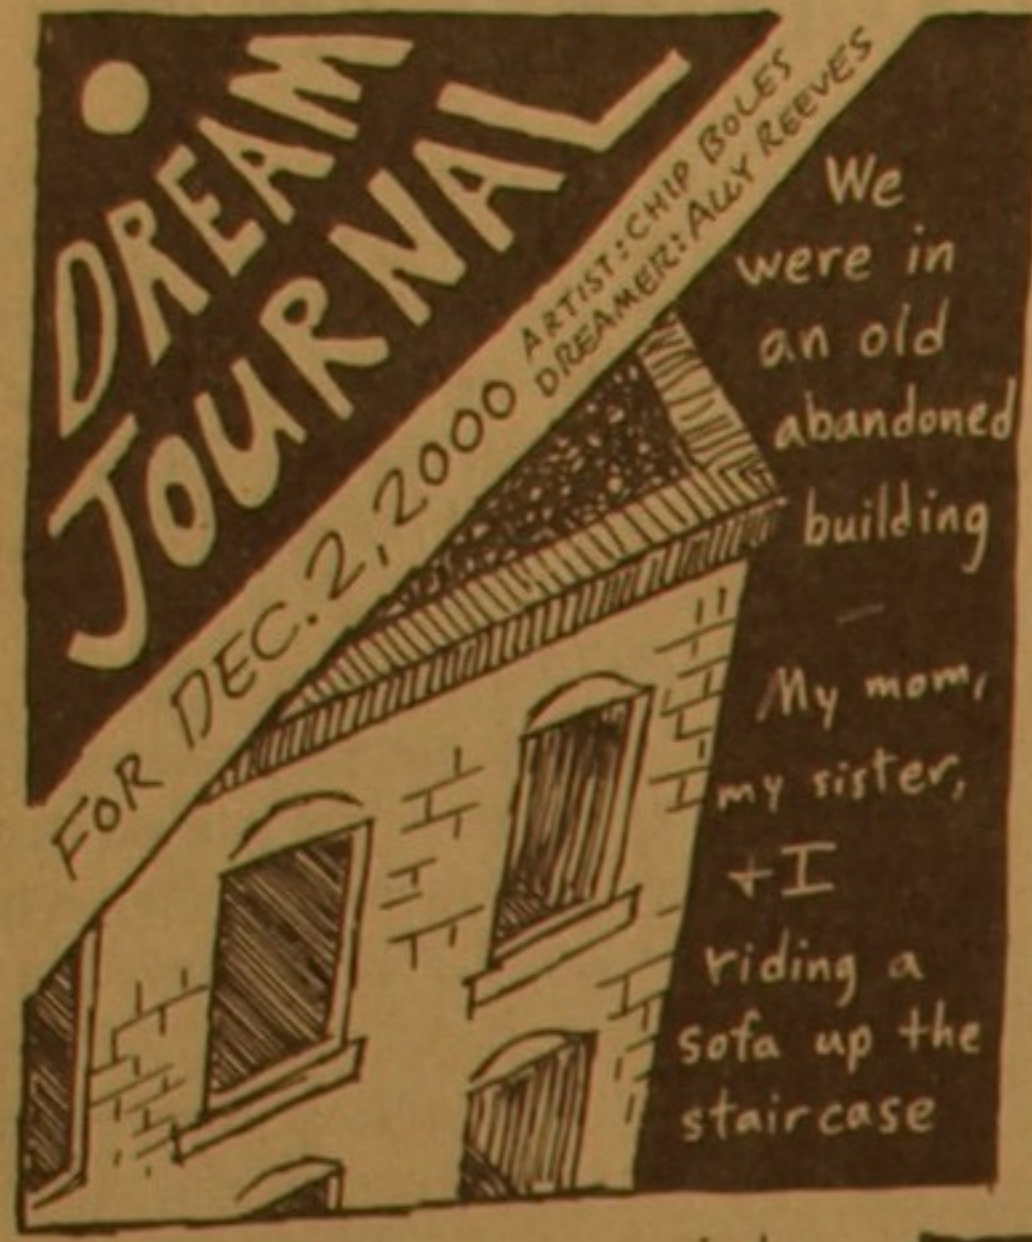 DREAM
JOURNAL
FOR DEC. 2, 2000
ARTIST: CHIP BOLES
DREAMER: ALLY REEVES
We
were in
an old
abandoned
building
My mom,
my sister,
+ I
riding a
sofa up the
staircase